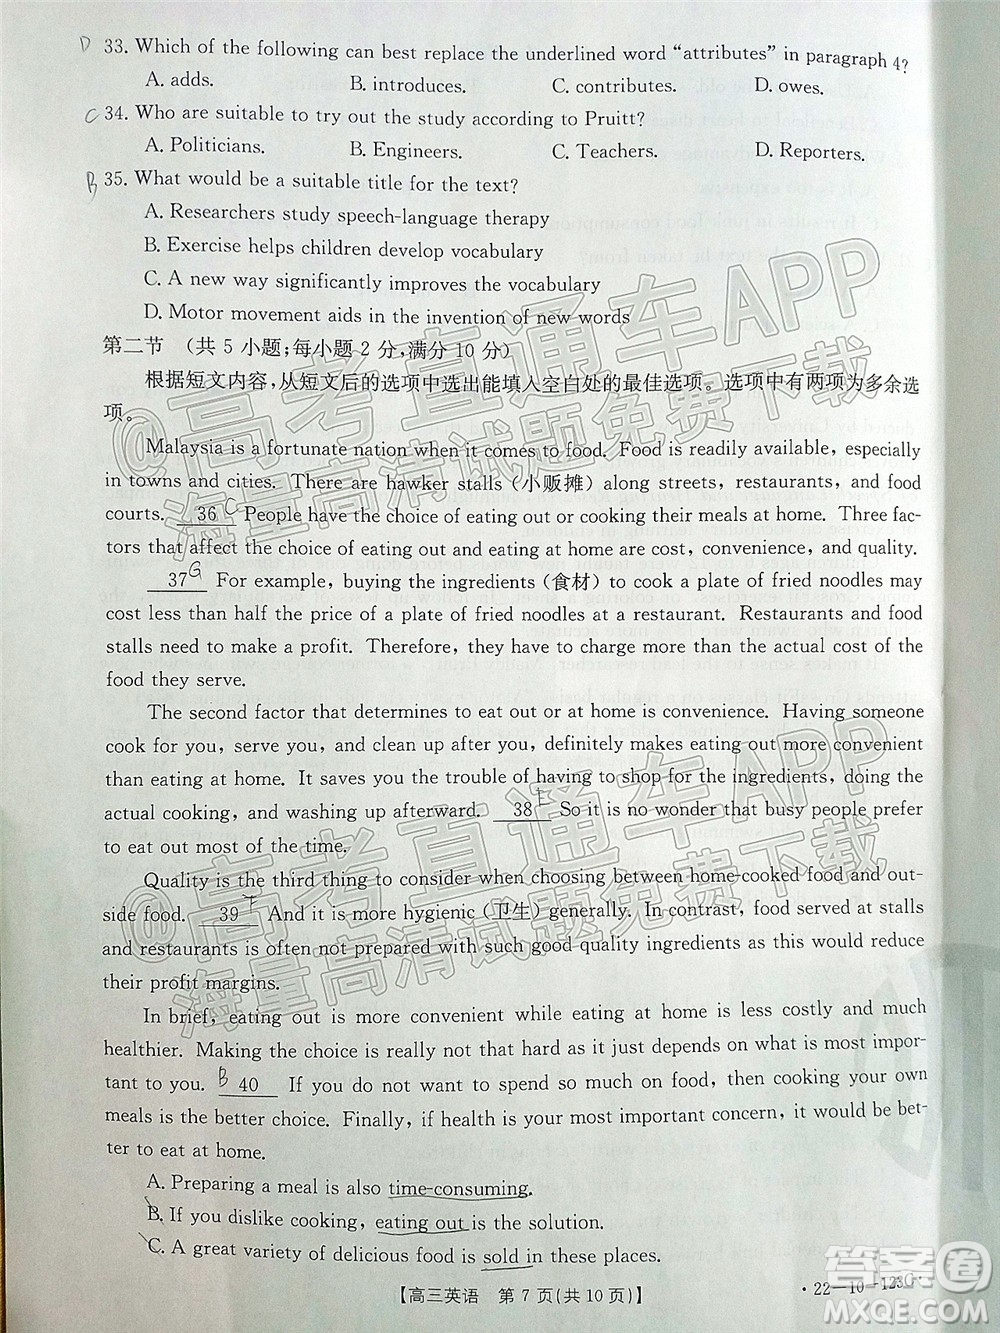 D 33. Which of the following can best replace the underlined word “attributes” in paragraph 4?
A. adds. B. introduces. C. contributes. D. owes.
C 34. Who are suitable to try out the study according to Pruitt?
A. Politicians. B. Engineers. C. Teachers. D. Reporters.
B 35. What would be a suitable title for the text?
A. Researchers study speech-language therapy
B. Exercise helps children develop vocabulary
C. A new way significantly improves the vocabulary
D. Motor movement aids in the invention of new words
第二节 （共 5 小题;每小题 2 分,满分 10 分）
根据短文内容,从短文后的选项中选出能填入空白处的最佳选项。选项中有两项为多余选
项。
Malaysia is a fortunate nation when it comes to food. Food is readily available, especially
in towns and cities. There are hawker stalls (小贩摊) along streets, restaurants, and food
courts. 36 C People have the choice of eating out or cooking their meals at home. Three fac-
tors that affect the choice of eating out and eating at home are cost, convenience, and quality.
37 G For example, buying the ingredients (食材) to cook a plate of fried noodles may
cost less than half the price of a plate of fried noodles at a restaurant. Restaurants and food
stalls need to make a profit. Therefore, they have to charge more than the actual cost of the
food they serve.
The second factor that determines to eat out or at home is convenience. Having someone
cook for you, serve you, and clean up after you, definitely makes eating out more convenient
than eating at home. It saves you the trouble of having to shop for the ingredients, doing the
actual cooking, and washing up afterward. 38 E So it is no wonder that busy people prefer
to eat out most of the time.
Quality is the third thing to consider when choosing between home-cooked food and out-
side food. 39 And it is more hygienic (卫生) generally. In contrast, food served at stalls
and restaurants is often not prepared with such good quality ingredients as this would reduce
their profit margins.
In brief, eating out is more convenient while eating at home is less costly and much
healthier. Making the choice is really not that hard as it just depends on what is most impor-
tant to you. B 40 If you do not want to spend so much on food, then cooking your own
meals is the better choice. Finally, if health is your most important concern, it would be bet-
ter to eat at home.
A. Preparing a meal is also time-consuming.
B. If you dislike cooking, eating out is the solution.
C. A great variety of delicious food is sold in these places.
【高三英语 第 7 页(共 10 页)】
· 22-10-123C ·
@高考直通车APP
海量高清试题免费下载
@高考直通车APP
海量高清试题免费下载
答案圈
MXQE.COM